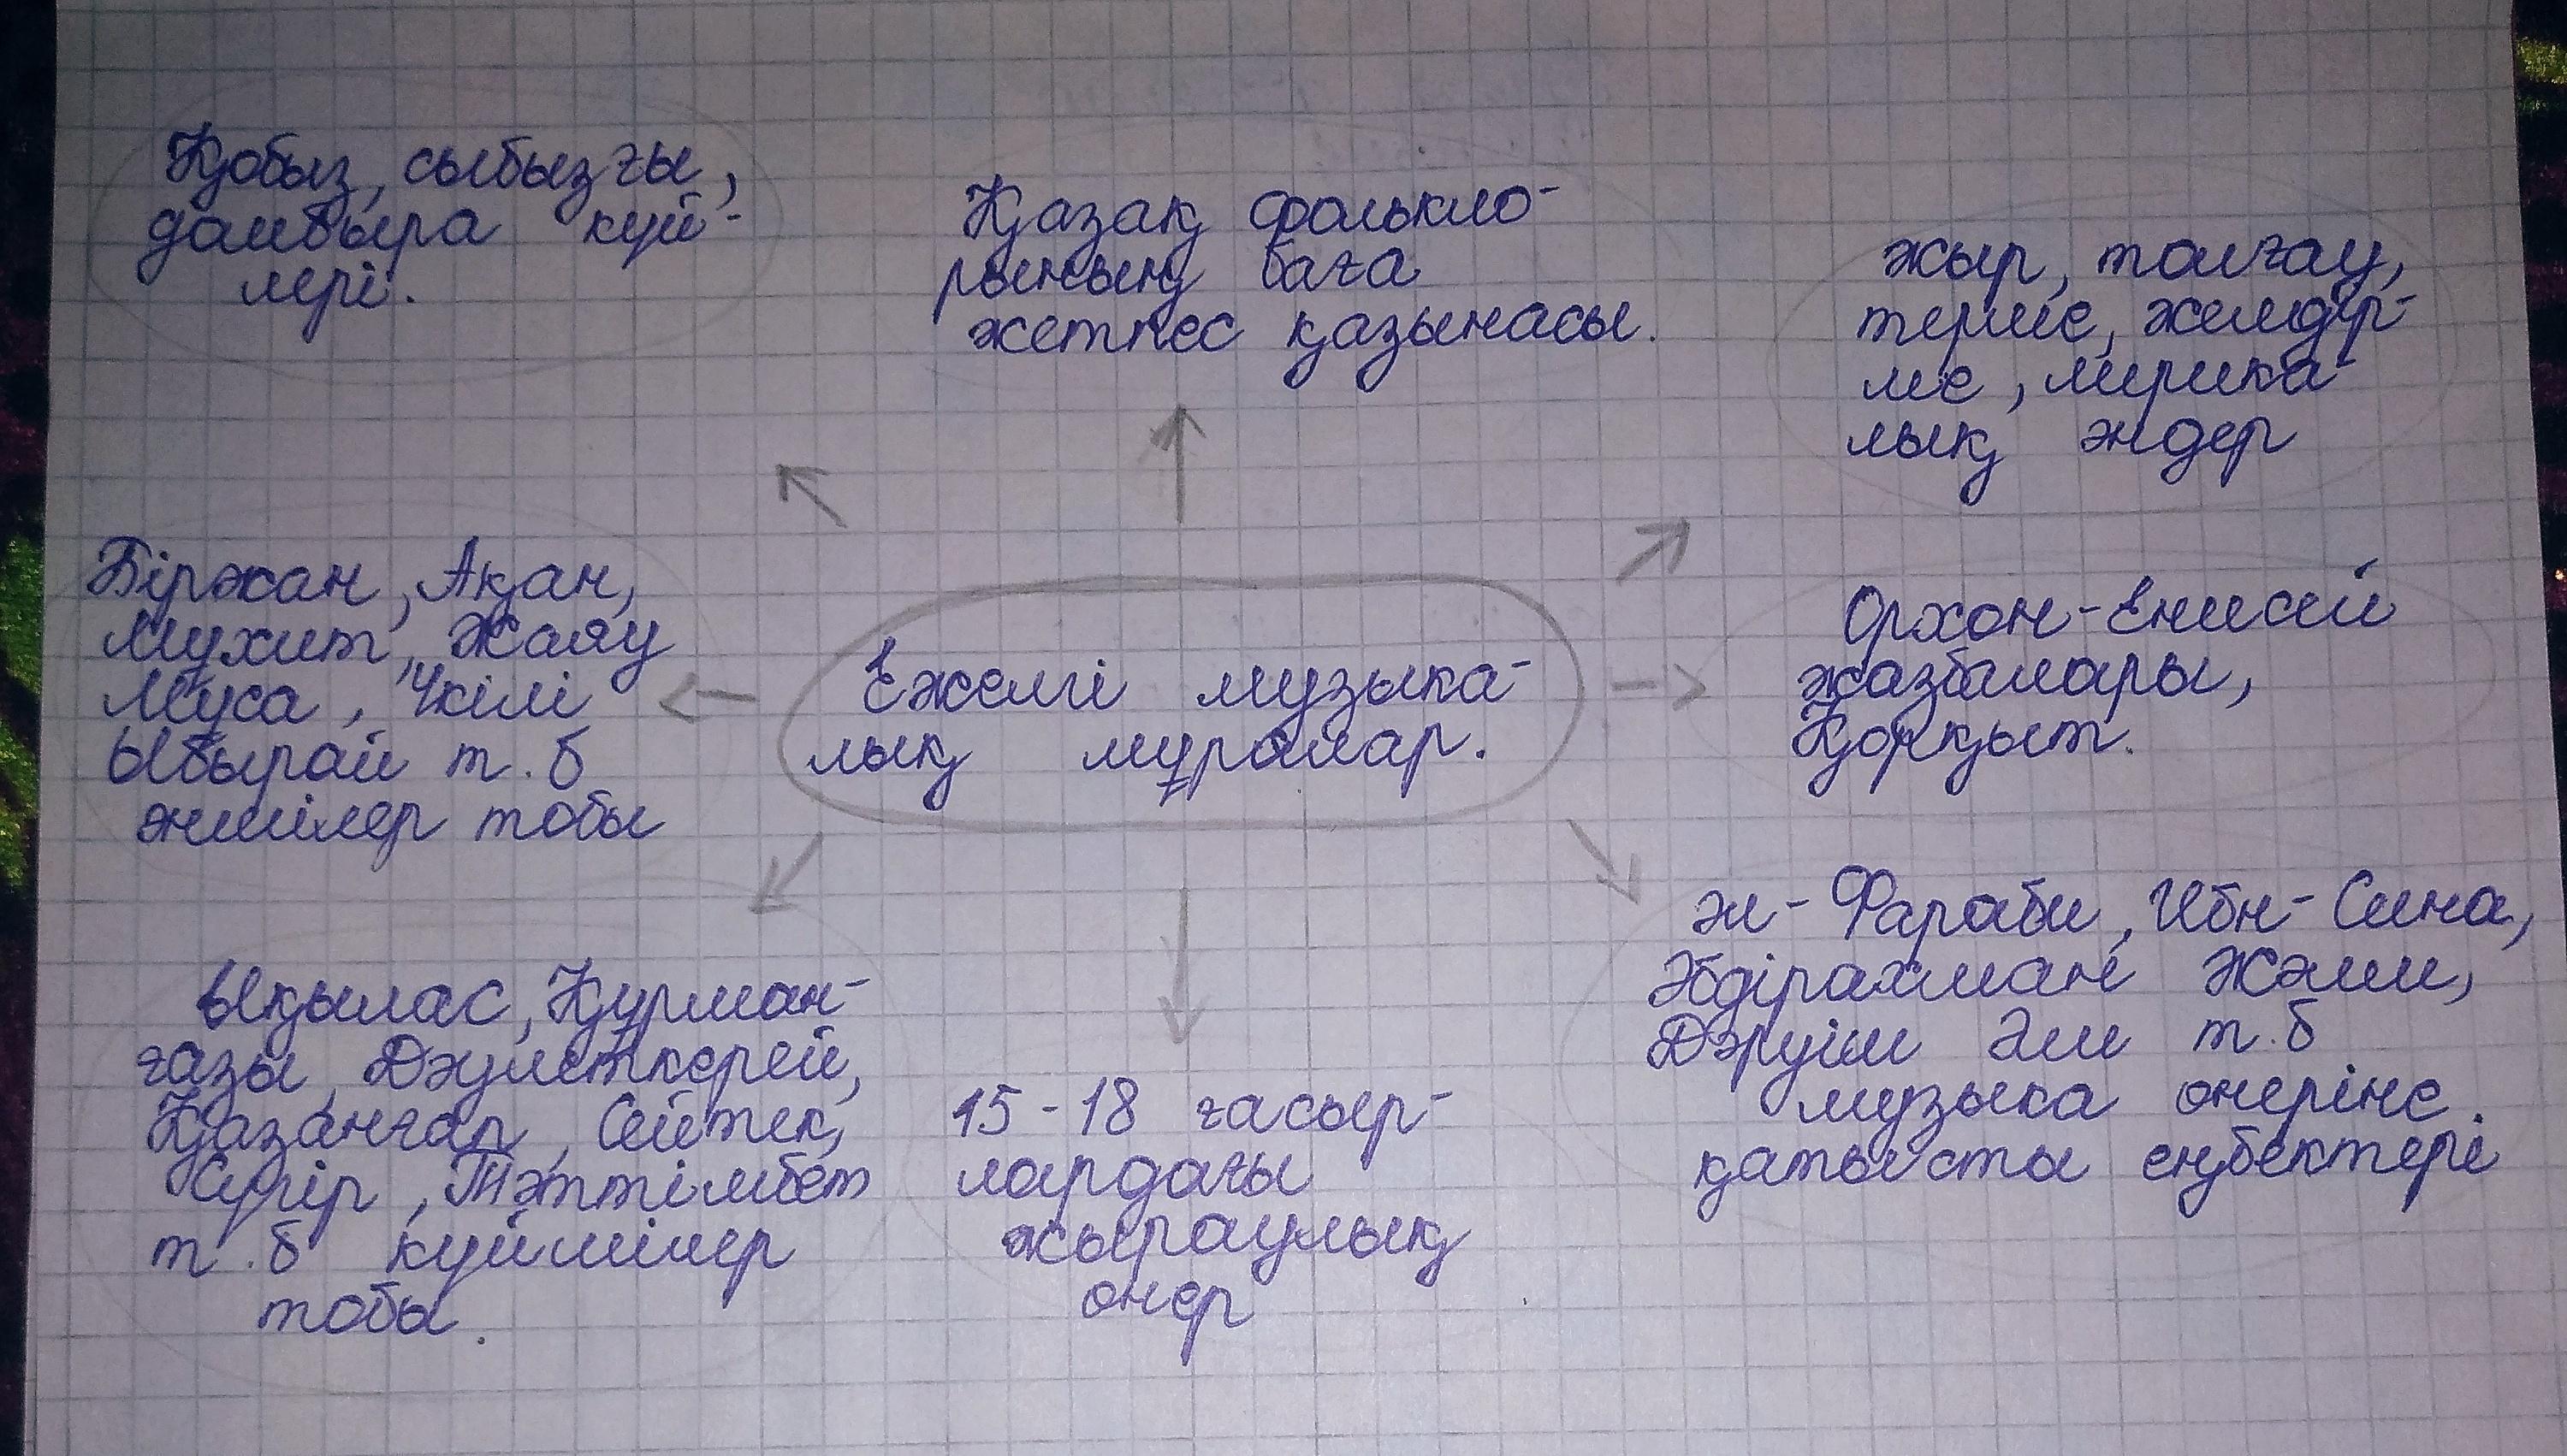 Қобыз, сыбызғы,
домбыра күй-
лері.
Қазақ фолькло-
рының баға
жетпес қазынасы.
жыр, толғау,
терме, желдір-
ме, лирика
лық әндер
Біржан, Ақан,
Мухит, Жаяу
Мұса, Үкілі
Ыбырай т.б
әншілер тобы
Ежелгі музыка-
лық мұралар.
Орхон-Енисей
жазбалары,
Қорқыт.
Ықылас, Құрман-
ғазы, Дәулеткерей,
Қазанғап, Сейтек,
Сүгір, Тәттімбет
т.б күйшілер
тобы.
15-18 ғасыр-
лардағы
жыраулық
өнер
әл-Фараби, Ибн-Сина,
Әбдірахман Жәми,
Дәруіш Әли т.б
музыка өнеріне
қатысты еңбектері